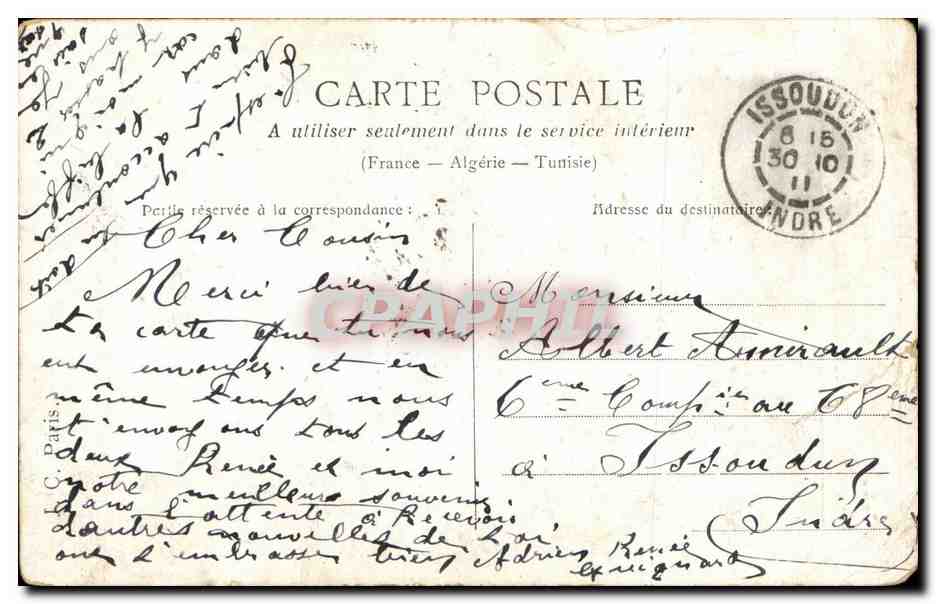 CARTE POSTALE
A utiliser seulement dans le service intérieur
(France — Algérie — Tunisie)
Partie réservée à la correspondance :
Adresse du destinataire
ISSOUDUN
8 15
30 10
11
INDRE
Cher Cousin
Merci bien de
ta carte que tu nous
ent envoyer et en
même temps nous
t'envoyons tous les
deux Renée et moi
notre meilleurs souvenir
dans l'attente à Recevoir
d'autres nouvelles de toi
ont t'embrasse bien Adrien Renée
Guignard
J'espère que
tu doit
Monsieur
Albert Amirault
6eme Compie au 68eme
à Issoudun
Indre
C. Paris
CRAPHIL